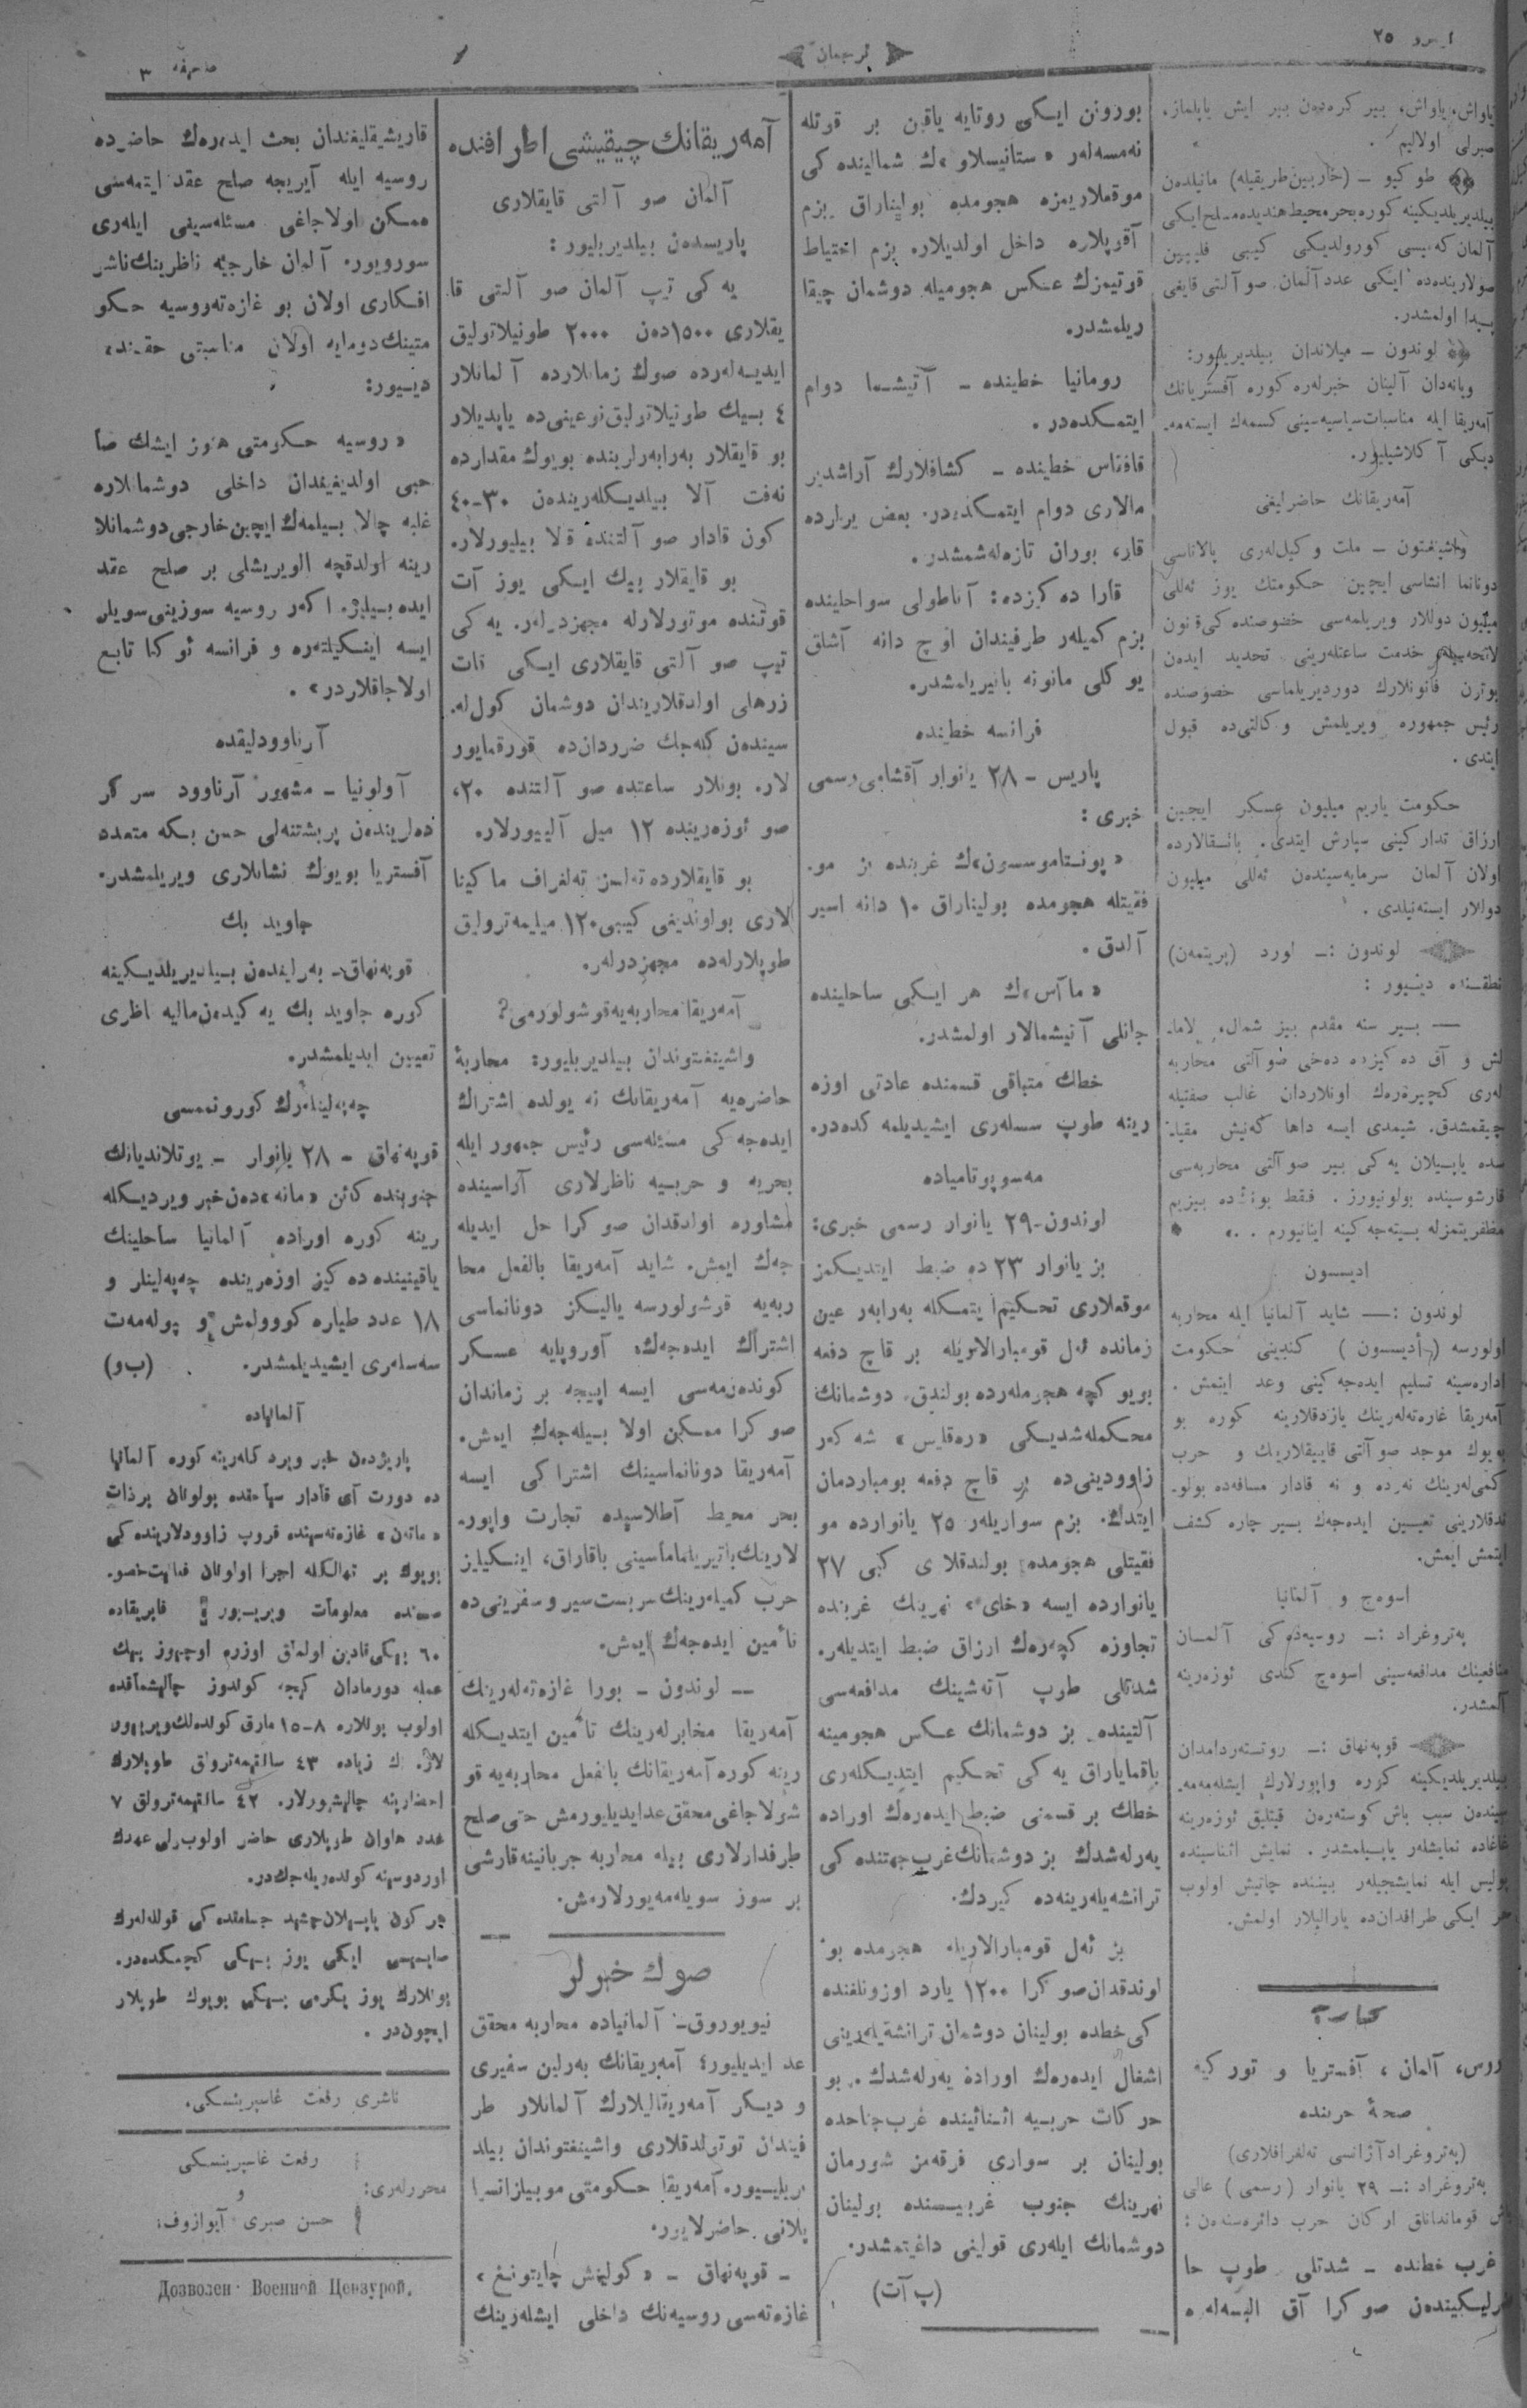 ٢٥
ترجمان
٣
ياواش، ياواش، بير كره‌دەن بير ايش ياپلماز،
صبرلى اولاليم .
طوكيو ــ (خاربين طريقيله) مانيلدەن
بيلديريلديكينه كوره بحر محيط هنديده مسلح ايكى
آلمان كەميسى كورولديكى كيبى فليپين
صولارينده‌ده ايكى عدد آلمان صو آلتى قايغى
پيدا اولمشدر.
لوندون ــ ميلاندان بيلديريليور:
ويانه‌دان آلينان خبرلەره كوره آفستريانك
آمەريقا ايله مناسبات سياسيه‌سينى كسمەك ايستەمە-
ديكى آكلاشيليور.
آمەريقانك حاضرليغى
واشينغتون ــ ملت وكيل‌لەرى پالاتاسى
دونانما انشاسى ايچين حكومتك يوز ئەللى
ميليون دوللار ويريلمەسى خصوصنده‌كى قانون
خدمت ساعتلەرينى تحديد ايدەن
قانونلارك دورديريلماسى خصوصنده
رئيس جمهوره ويريلمش وكالتى‌ده قبول
ايتدى .
حكومت ياريم ميليون عسكر ايچين
ارزاق تداركينى سپارش ايتدى. بانقالارده
اولان آلمان سرمايه‌سيندەن ئەللى ميليون
دوللار ايستەنيلدى .
لوندون :ــ لورد (پريتمەن)
نطقنده دييور :
ــ بير سنه مقدم بيز شمال،
و آق دەكيزده دەخى صو آلتى محاربه
لەرى كچيرەرەك اونلاردان غالب صفتيله
چيقمشدق. شيمدى ايسه داها كەنيش
ياپيلان يەكى بير صو آلتى محاربەسى
قارشوسينده بولونيورز . فقط بونڭ‌ده بيزيم
مظفريتمزله بيتەجەكينه اينانيورم . .»
اديسون
لوندون :ــ شايد آلمانيا ايله محاربه
اولورسه (أديسون) كندينى حكومت
اداره‌سينه تسليم ايدەجەكينى وعد ايتمش .
آمەريقا غازەتەلەرينك يازدقلارينه كوره بو
بويوك موجد صو آلتى قاييقلارينك و حرب
كمى‌لەرينك نەرده و نه قادار مسافه‌ده بولو-
ندقلارينى تعيين ايدەجەك بير چاره كشف
ايتمش ايمش.
اسوەج و آلمانيا
پەتروغراد :ــ روسيەدەكى آلمان
منافعينك مدافعه‌سينى اسوەج كندى ئوزەرينه
آلمشدر.
قوپەنهاق :ــ روتتەردامدان
بيلديريلديكينه كوره واپورلارك ايشلەمەمە-
سيندەن سبب باش كوستەرەن قيتليق ئوزەرينه
نمايشلەر ياپيلمشدر . نمايش اثناسينده
پوليس ايله نمايشجيلەر بيننده چاتيش اولوب
هر ايكى طرافدان‌ده يارالیلار اولمش.
محاربه
روس، آلمان ، آفستريا و توركيه
صحۀ حربنده
(پەتروغراد آژانسى تەلغرافلارى)
پەتروغراد :ــ ٢٩ يانوار (رسمى) عالى
باش قومانداناق اركان حرب دائرەسندەن :
غرب خطنده ــ شدتلى طوپ حا
ضرليكيندەن صوكرا آق البسەلەره
بورونن ايكى روتايه ياقين بر قوتله
نەمسەلەر «ستانيسلاو»ك شمالينده كى
موقعلاريمزه هجومده بولیناراق بزم
آقوپلاره داخل اولديلار. بزم احتياط
قوتيمزك عكس هجوميله دوشمان چيقا
ريلمشدر.
رومانيا خطينده ــ آتيشما دوام
ايتمكدەدر .
قافقاس خطينده ــ كشافلارك آراشدير
مالارى دوام ايتمكدەدر. بعض يرلرده
قار، بوران تازەلەشمشدر .
قارا دەكيزده: آناطولى سواحلينده
بزم كميلەر طرفيندان اوچ دانه آشلق
يوكلى مانونه باتيريلمشدر.
فرانسه خطينده
پاريس ــ ٢٨ يانوار آقشامى رسمى
خبرى :
«پونتاموسسون»ك غربنده بز مو-
فقيتله هجومده بولیناراق ١٠ دانه اسير
آلدق .
«ماآس»ك هر ايكى ساحلينده
جانلى آتيشمالار اولمشدر.
خطك متباقى قسمنده عادتى اوزه
رينه طوپ سسلەرى ايشيديلمەكدەدر.
مەسوپوتامياده
لوندون-٢٩ يانوار رسمى خبرى:
بز يانوار ٢٣ ده ضبط ايتديكمز
موقعلارى تحكيم ايتمكله بەرابەر عين
زمانده ئەل قومبارالاريله بر قاچ دفعه
بويو كچه هجوملەرده بولندق. دوشمانك
محكملەشديكى «رەقايس» شەكەر
زاوودينى‌ده بر قاچ دفعه بومباردمان
ايتدك. بزم سواريلەر ٢٥ يانوارده مو
فقيتلى هجومده بولندقلاى كبى ٢٧
يانوارده ايسه «خاى» نهرينك غربنده
تجاوزه كچەرەك ارزاق ضبط ايتديلەر.
شدتلى طوپ آتەشينك مدافعەسى
آلتينده بز دوشمانك عكس هجومينه
باقماياراق يەكى تحكيم ايتديكلەرى
خطك بر قسمنى ضبط ايدەرەك اوراده
يەرلەشدك بز دوشمانك غرب جهتنده كى
ترانشەيەلەرينەده كيردك.
بز ئەل قومبارالاريله هجومده بو
لوندقدان صوكرا ١٢٠٠ يارد اوزونلغنده
كى خطده بولينان دوشمان ترانشەيەلەرينى
اشغال ايدەرەك اوراده يەرلەشدك . بو
حركات حربيه اثناينده غرب جناحده
بولينان بر سوارى فرقەمز شورمان
نهرينك جنوب غربيسنده بولينان
دوشمانك ايلەرى قولينى داغيتمشدر.
(پ آ ت)
آمەريقانك چيقيشى اطرافنده
آلمان صو آلتى قايقلارى
پاريسدەن بيلديريليور :
يەكى تيپ آلمان صو آلتى قا
يقلارى ١٥٠٠دەن ٢٠٠٠ طونيلاتوليق
ايديسەلەرده صوك زمانلارده آلمانلار
٤ بيك طونيلاتوليق نوعينى‌ده ياپديلار
بو قايقلار بەرابەرلرينده بويوك مقدارده
نەفت آلا بيلديكلەريندەن ٣٠-٤٠
كون قادار صو آلتنده قالا بيليورلار.
بو قايقلار بيك ايكى يوز آت
قوتنده موتورلارله مجهزدرلەر. يەكى
تيپ صو آلتى قايقلارى ايكى قات
زرهلى اولدقلاريندان دوشمان كوللە-
سيندەن كلەجك ضرردان‌ده قورقمايور
لار. بونلار ساعتده صو آلتنده ٢٠،
صو ئوزەرينده ١٢ ميل آلييورلار.
بو قايقلارده تەلسز تەلغراف ماكينا
لارى بولوندينى كيبى ١٢٠ ميليمەترولیق
طوپلارلەده مجهزدرلەر.
آمەريقا محاربەيه قوشولورمى؟
واشينغتوندان بيلديريليور: محاربۀ
حاضرەيه آمەريقانك نه يولده اشتراك
ايدەجەكى مسئلەسى رئيس جمهور ايله
بحريه و حربيه ناظرلارى آراسينده
مشاوره اولدقدان صوكرا حل ايديله
جەك ايمش. شايد آمەريقا بالفعل محا
ربەيه قوشولورسه يالیكز دونانماسى
اشتراك ايدەجەك، آوروپايه عسكر
كوندەرمەسى ايسه اپيجه بر زماندان
صوكرا ممكن اولا بيلەجەك ايمش.
آمەريقا دونانماسينك اشتراكى ايسه
بحر محيط آطلاسيده تجارت واپور-
لارينك باتيريلماماسينى باقاراق، اينكيليز
حرب كميلەرينك سربست سير و سفرينى‌ده
تأمين ايدەجەك ايمش.
ــ لوندون ــ بورا غازەتەلەرينك
آمەريقا مخابرلەرينك تأمين ايتديكلە
رينه كوره آمەريقانك بالفعل محاربەيه قو
شولاجاغى محقق عد ايديليورمش حتى صلح
طرفدارلارى بيله محاربه جريانينه قارشى
بر سوز سويلەمەيورلارمش.
صوك خبرلر
نيويوروق-: آلمانياده محاربه محقق
عد ايديليور؛ آمەريقانك بەرلين سفيرى
و ديكر آمەريقاليلارك آلمانلار طر
فيندان توتولدقلارى واشينغتوندان بيلد
يريليور. آمەريقا حكومتى موبيليزاتسيا
پلانى حاضرلايور.
ــ قوپەنهاق ــ «كولنيش چايتونغ»
غازەتەسى روسيەنك داخلى ايشلەرينك
قاريشيقليغندان بحث ايدەرەك حاضرده
روسيه ايله آيريجه صلح عقد ايتمەسى
ممكن اولاجاغى مسئلەسينى ايلەرى
سورويور. آلمان خارجيه ناظرينك ناشر
افكارى اولان بو غازەته روسيه حكو
متينك دومايه اولان مناسبتى حقنده
دييور:
«روسيه حكومتى هنوز ايشك صا
حبى اولديغندان داخلى دوشمانلاره
غلبه چالا بيلمەك ايچين خارجى دوشمانلا
رينه اولدقچه الويريشلى بر صلح عقد
ايده بيلير. اكەر روسيه سوزينى سويلر
ايسه اينكيلتەره و فرانسه ئوكا تابع
اولاجاقلاردر» .
آرناوودليقده
آولونيا ــ مشهور آرناوود سركر
دەلريندەن پريشتنەلى حسن بكه متعدد
آفستريا بويوك نشانلارى ويريلمشدر.
جاويد بك
قوپەنهاق- بەرليندەن بيلديريلديكينه
كوره جاويد بك يەكيدەن ماليه ناظرى
تعيين ايديلمشدر.
چەپەلينلەرك كورونمسى
قوپەنهاق ــ ٢٨ يانوار ــ يوتلانديانك
جنوبنده كائن «مانه»دەن خبر ويرديكلە
رينه كوره اوراده آلمانيا ساحلينك
ياقينينده دەكيز اوزەرينده چەپەلينلر و
١٨ عدد طياره كوولمش و پولەمەت
سەسلەرى ايشيديلمشدر. (ب و)
آلمانياده
پاريژدەن خبر ويردكلەرينه كوره آلمانيا
ده دورت آى قادار سياحتده بولونان بر ذات
«ماتەن» غازەتەسينده قروپ زاوودلارينده كى
بويوك بر تهالكله اجرا اولونان فعاليت خصو-
صنده معلومات ويريیور؛ فابريقاده
٦٠ بيكى قادين اولماق اوزره اوچيوز بيك
عمله دورمادان كيجه كوندوز چاليشماقده
اولوب بونلاره ٨-١٥ مارق كوندەلك ويريیور
لار. اك زياده ٤٣ سانتيمەترولق طوپلارك
احضارينه چاليشيورلار. ٤٢ سانتيمەترولق ٧
عدد هاوان طوپلارى حاضر اولوب
اوردوسينه كوندەريلەجكدر.
هر كون ياپيلان مختلف جسامتده كى قوللەلەرك
صاييسى ايكى يوز بيكى كچمكدەدر.
بونلارك يوز يكرمى بيكى بويوك طوپلار
ايچوندر .
ناشرى رفعت غاسپرينسكى.
محررلەرى:
رفعت غاسپرينسكى
و
حسن صبرى آيوازوف؛
Дозволен· Военной Цензурой.